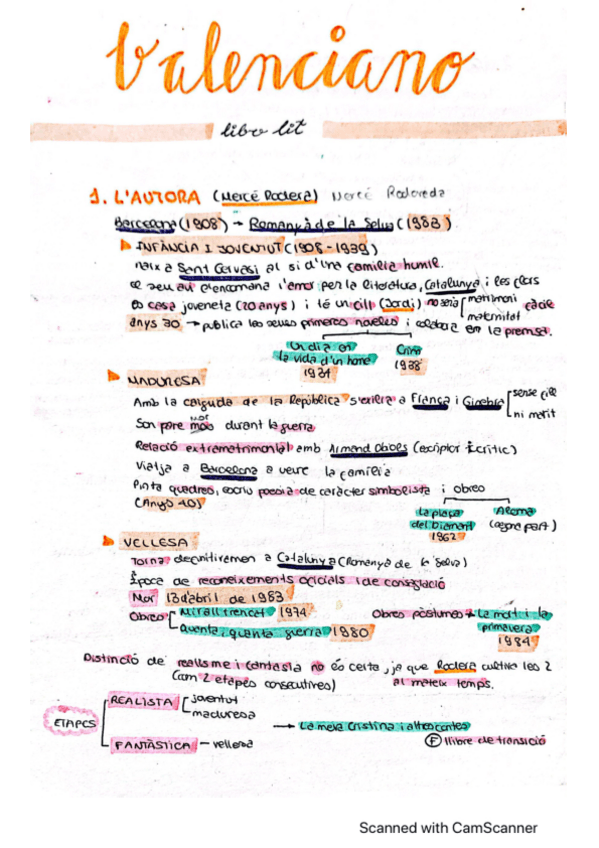 Valenciano
libro lit
1. L'AUTORA (Mercé Rodera) Mercé Rodoreda
Barcelona (1908) → Romanyà de la Selva (1983)
INFÀNCIA I JOVENTUT (1908-1939)
naix a Sant Gervasi al si d'una familia humil.
el seu avi l'encomana l'amor per la literatura, Catalunya i les flors
Es casa joveneta (20 anys) i té un fill (Jordi) no seria matrimoni fàcil
maternitat
anys 30 → publica les seues primeres novel·les i col·labora en la premsa.
Un dia en
la vida d'un home
1934
Crim
1938
MADURESA
Amb la caiguda de la República s'exilia a França i Ginebra sense fill
ni marit
Son pare mor durant la guerra
Relació extramatrimonial amb Armand Obiols (escriptor i crític)
Viatja a Barcelona a veure la familia
Pinta quadres, escriu poesia de caràcter simbolista i obres
(Anys 40)
La plaça
del Diamant
1962
Aloma
(segona part)
VELLESA
Torna definitivamen a Catalunya (Romanya de la Selva)
Època de reconeixements oficials i de consagració
Mor 13 d'abril de 1983
Obres Mirall trencat 1974
Quanta, quanta guerra 1980
Obres pòstumes → La mort i la
primavera
1984
Distinció de realisme i fantasia no és certa, ja que Rodera cultiva les 2
(com 2 etapes consecutives) al mateix temps.
ETAPES
REALISTA joventut
maduresa
→ La meva Cristina i altres contes
(F) llibre de transició
FANTÀSTICA - vellesa
Scanned with CamScanner